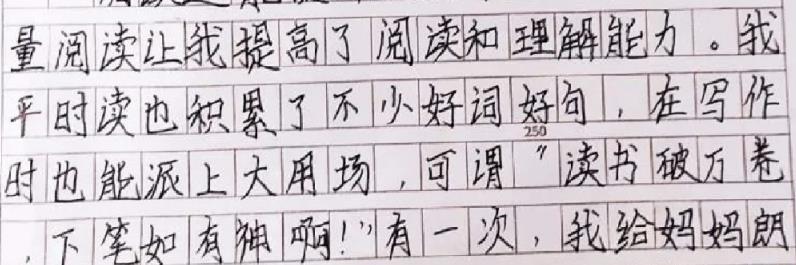 量阅读让我提高了阅读和理解能力。我
平时读也积累了不少好词好句,在写作
250
时也能派上大用场,可谓“读书破万卷
,下笔如有神啊!”有一次,我给妈妈朗